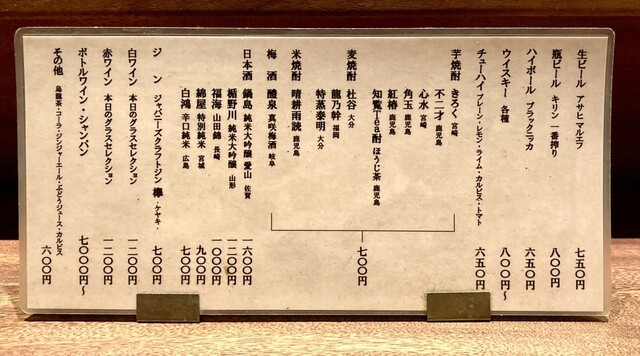 生ビール アサヒ マルエフ 七五〇円
瓶ビール キリン 一番搾り 八〇〇円
ハイボール ブラックニッカ 六五〇円
ウイスキー 各種 八〇〇円〜
チューハイ プレーン・レモン・ライム・カルピス・トマト 六五〇円
芋焼酎 きろく 宮崎
不二才 鹿児島
心水 宮崎
角玉 鹿児島
紅椿 鹿児島
知覧Tea酎 ほうじ茶 鹿児島
麦焼酎 杜谷 大分
龍乃幹 福岡
特蒸泰明 大分
米焼酎 晴耕雨読 鹿児島
梅酒 醴泉 真咲梅酒 岐阜
七〇〇円
日本酒 鍋島 純米大吟醸 愛山 佐賀 一六〇〇円
楯野川 純米大吟醸 山形 一二〇〇円
福海 山田錦 長崎 一〇〇〇円
綿屋 特別純米 宮城 九〇〇円
白鴻 辛口純米 広島 七〇〇円
ジン ジャパニーズクラフトジン 欅・ケヤキ・ 七〇〇円
白ワイン 本日のグラスセレクション 一二〇〇円
赤ワイン 本日のグラスセレクション 一二〇〇円
ボトルワイン・シャンパン 七〇〇〇円〜
その他 烏龍茶・コーラ・ジンジャーエール・ぶどうジュース・カルピス 六〇〇円